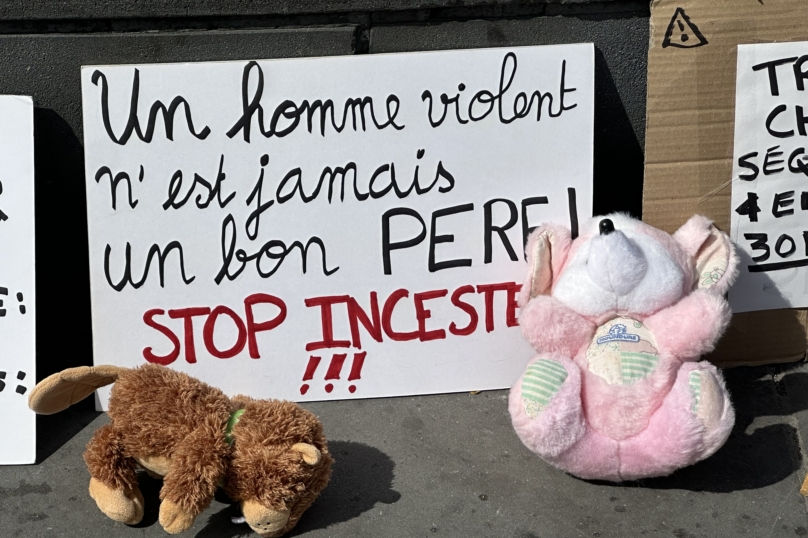 Un homme violent
n'est jamais
un bon PERE!
STOP INCESTE
!!!
TR
CH
SÉQ
4 E
30